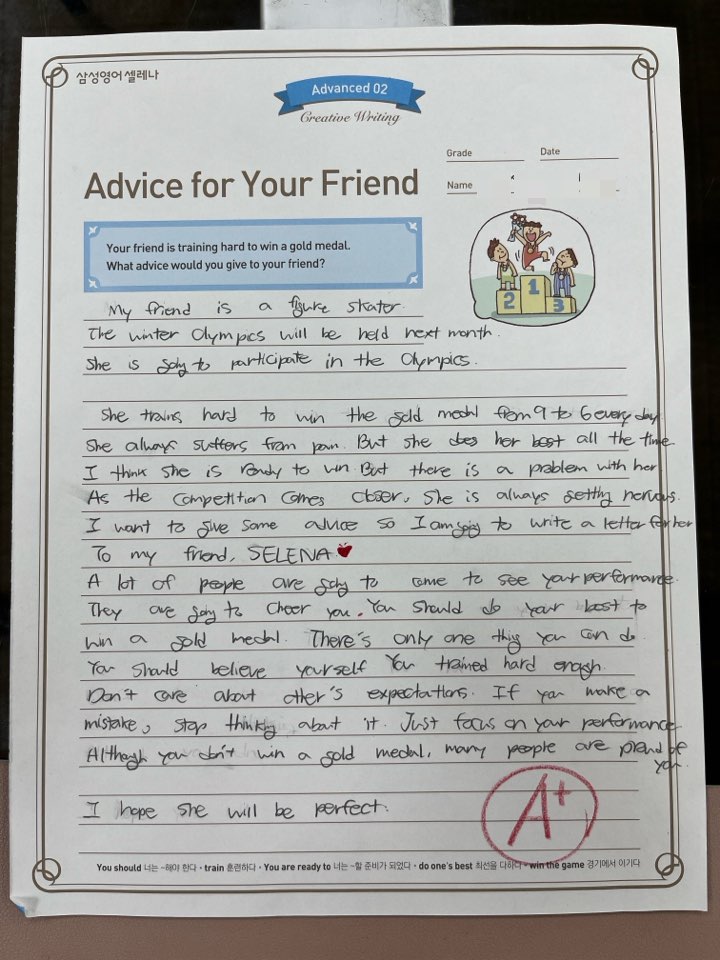 삼성영어 셀레나
Advanced 02
Creative Writing
Grade
Date
Name
Advice for Your Friend
Your friend is training hard to win a gold medal.
What advice would you give to your friend?
2 1 3
My friend is a figure skater.
The winter Olympics will be held next month.
She is going to participate in the Olympics.
She trains hard to win the gold medal from 9 to 6 every day
She always suffers from pain. But she does her best all the time
I think she is ready to win. But there is a problem with her
As the competition comes closer, she is always getting nervous.
I want to give some advice so I am going to write a letter for her
To my friend, SELENA
A lot of people are going to come to see your performance.
They are going to cheer you. You should do your best to
win a gold medal. There's only one thing you can do.
You should believe yourself You trained hard enough.
Don't care about other's expectations. If you make a
mistake, stop thinking about it. Just focus on your performance
Although you don't win a gold medal, many people are proud of
you.
I hope she will be perfect.
A+
You should 너는 ~해야 한다 · train 훈련하다 · You are ready to 너는 ~할 준비가 되었다 · do one's best 최선을 다하다 · win the game 경기에서 이기다